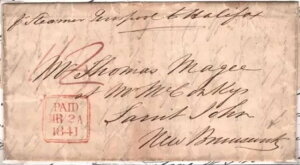 p Steamer Liverpool to Halifax
Mr Thomas Magee
at Mr McCoskys
Saint John
New Brunswick
PAID
2A
1841